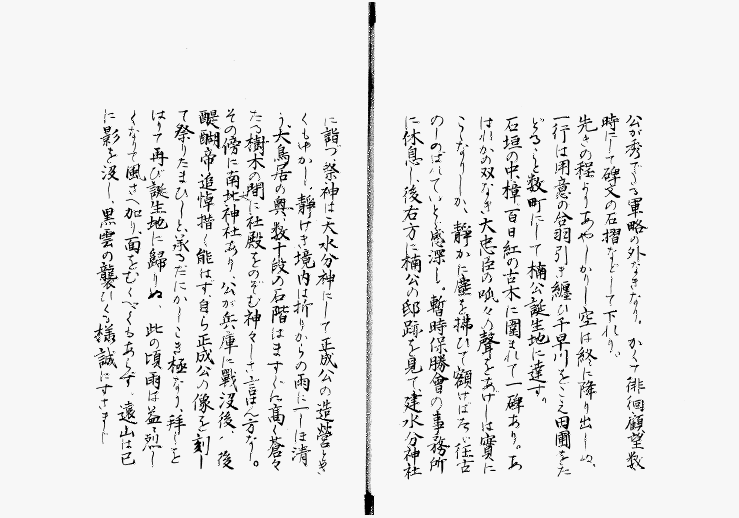 公が秀でたる軍略の外なきなり。かくて徘徊顧望数
時にして碑文の石摺などして下れり。
先きの程よりあやしかりし空は終に降り出しぬ、
一行は用意の合羽引き纏ひ千早川をこえ田圃をた
どること数町にして楠公誕生地に達す。
石垣の中樟、百日紅の古木に圍まれて一碑あり。あ
はれかの双なき大忠臣の呱々の聲をあげしは實に
こゝなりしか、静かに塵を拂ひて額けばそゞろ往古
のしのばれていと感深し。暫時保勝會の事務所
に休息し、後右方に楠公の邸跡を見て建水分神社
に詣づ、祭神は天水分神にして正成公の造營とき
くもゆかし、静けき境内は折りからの雨に一しほ清
う、大鳥居の奥、数十段の石階はますぐに高く蒼々
たる樹木の間に社殿をのぞむ神々しさ言はん方なし。
その傍に南北神社あり、公が兵庫に戰没後、後
醍醐帝追悼措く能はず、自ら正成公の像を刻し
て祭りたまひしと承るだにかしこき極なり、拜しを
はりて再び誕生地に歸りぬ、此の頃雨は益々烈し
くなりて風さへ加り面をむくべくもあらず、遠山は已
に影を没し、黒雲の襲ひくる様誠にすさまし